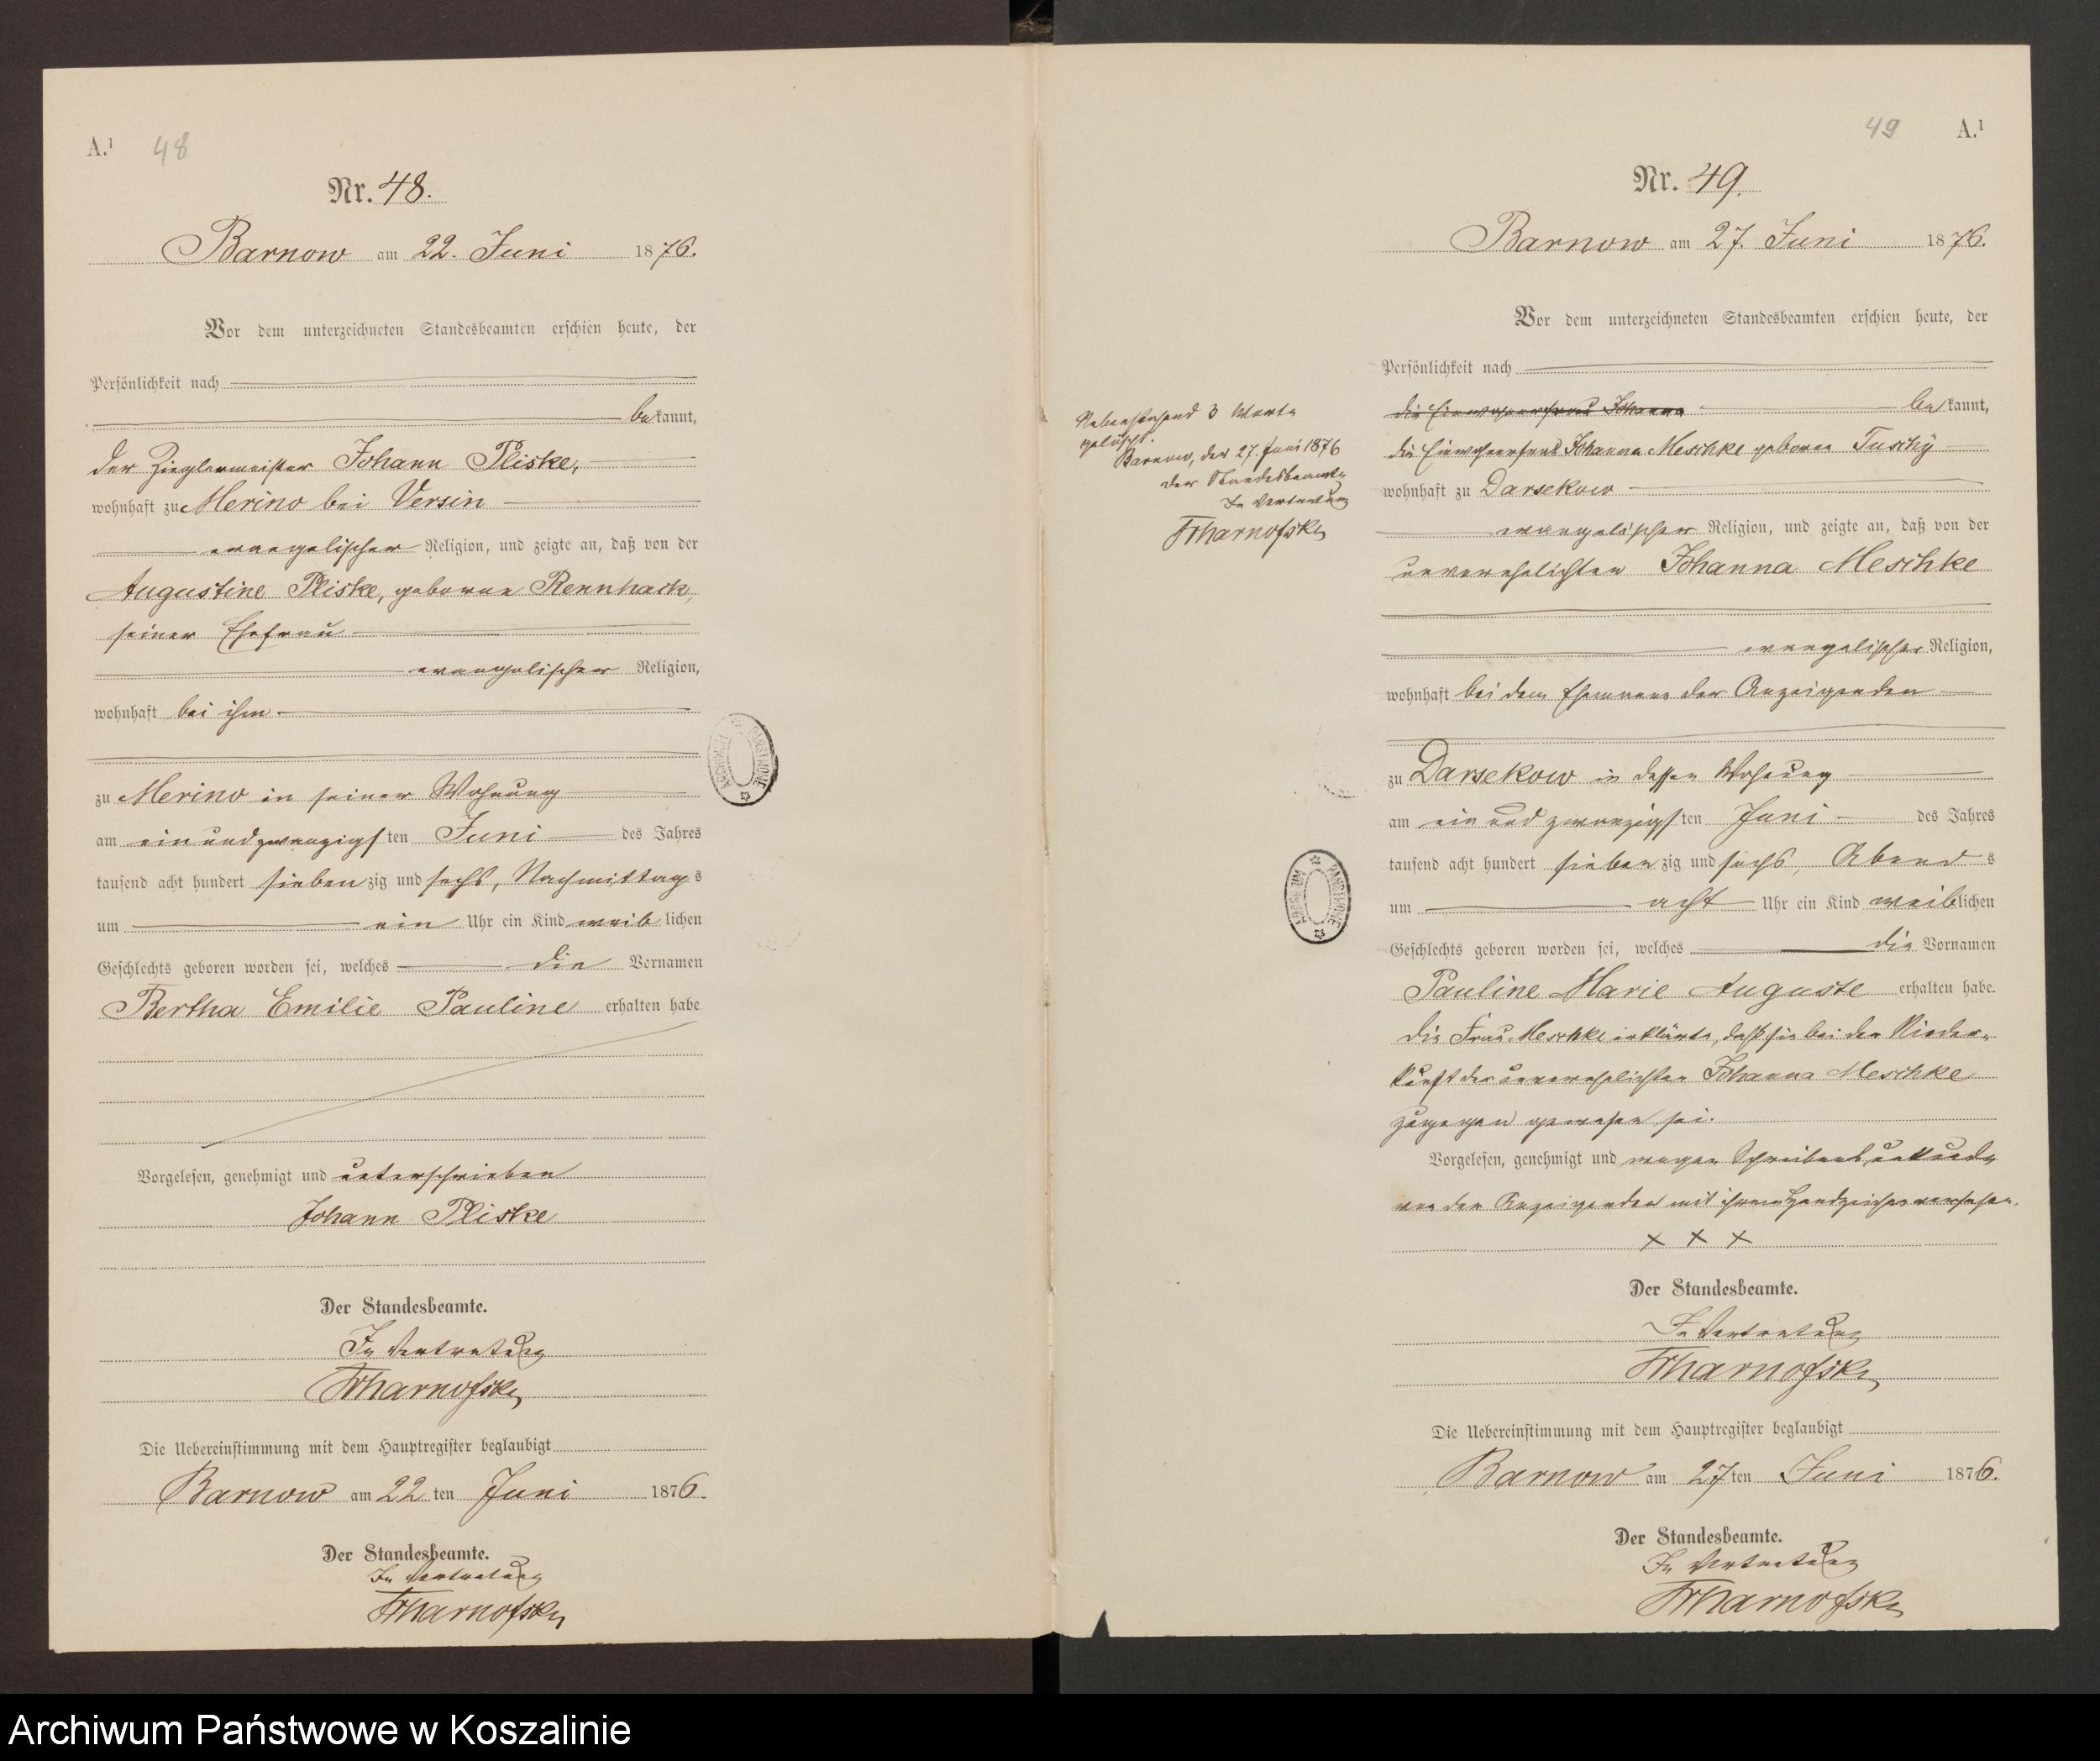 A.¹ 48
Nr. 48.
Barnow am 22. Juni 1876.
Vor dem unterzeichneten Standesbeamten erschien heute, der
Persönlichkeit nach
bekannt,
der Zieglermeister Johann Pliske,
wohnhaft zu Merino bei Versin
evangelischer Religion, und zeigte an, daß von der
Augustine Pliske, geborne Rennhack,
seiner Ehefrau
evangelischer Religion,
wohnhaft bei ihm
zu Merino in seiner Wohnung
am ein und zwanzigsten Juni des Jahres
tausend acht hundert siebenzig und sechs, Nachmittags
um ein Uhr ein Kind weiblichen
Geschlechts geboren worden sei, welches die Vornamen
Bertha Emilie Pauline erhalten habe.
Vorgelesen, genehmigt und unterschrieben
Johann Pliske
Der Standesbeamte.
In Vertretung
Die Uebereinstimmung mit dem Hauptregister beglaubigt
Barnow am 22ten Juni 1876.
Der Standesbeamte.
In Vertretung
49 A.¹
Nr. 49.
Barnow am 27. Juni 1876.
Vor dem unterzeichneten Standesbeamten erschien heute, der
Persönlichkeit nach
die Einwohnerfrau Johanna bekannt,
die Einwohnerfrau Johanna Meschke geborne Tuschÿ
wohnhaft zu Darsekow
evangelischer Religion, und zeigte an, daß von der
unverehelichten Johanna Meschke
evangelischer Religion,
wohnhaft bei dem Ehemann der Anzeigenden
zu Darsekow in dessen Wohnung
am ein und zwanzigsten Juni des Jahres
tausend acht hundert siebenzig und sechs, Abends
um acht Uhr ein Kind weiblichen
Geschlechts geboren worden sei, welches die Vornamen
Pauline Marie Auguste erhalten habe.
Die Frau Meschke erklärte, daß sie bei der Nieder-
kunft der unverehelichten Johanna Meschke
zugegen gewesen sei.
Vorgelesen, genehmigt und wegen Schreibensunkunde
von der Anzeigenden mit ihrem Handzeichen versehen.
x x x
Der Standesbeamte.
In Vertretung
Die Uebereinstimmung mit dem Hauptregister beglaubigt
Barnow am 27ten Juni 1876.
Der Standesbeamte.
In Vertretung
Nebenstehend 3 Worte
gelöscht.
Barnow, der 27. Juni 1876
der Standesbeamte
In Vertretung
ARCHIWUM PAŃSTWOWE
ARCHIWUM PAŃSTWOWE
Archiwum Państwowe w Koszalinie